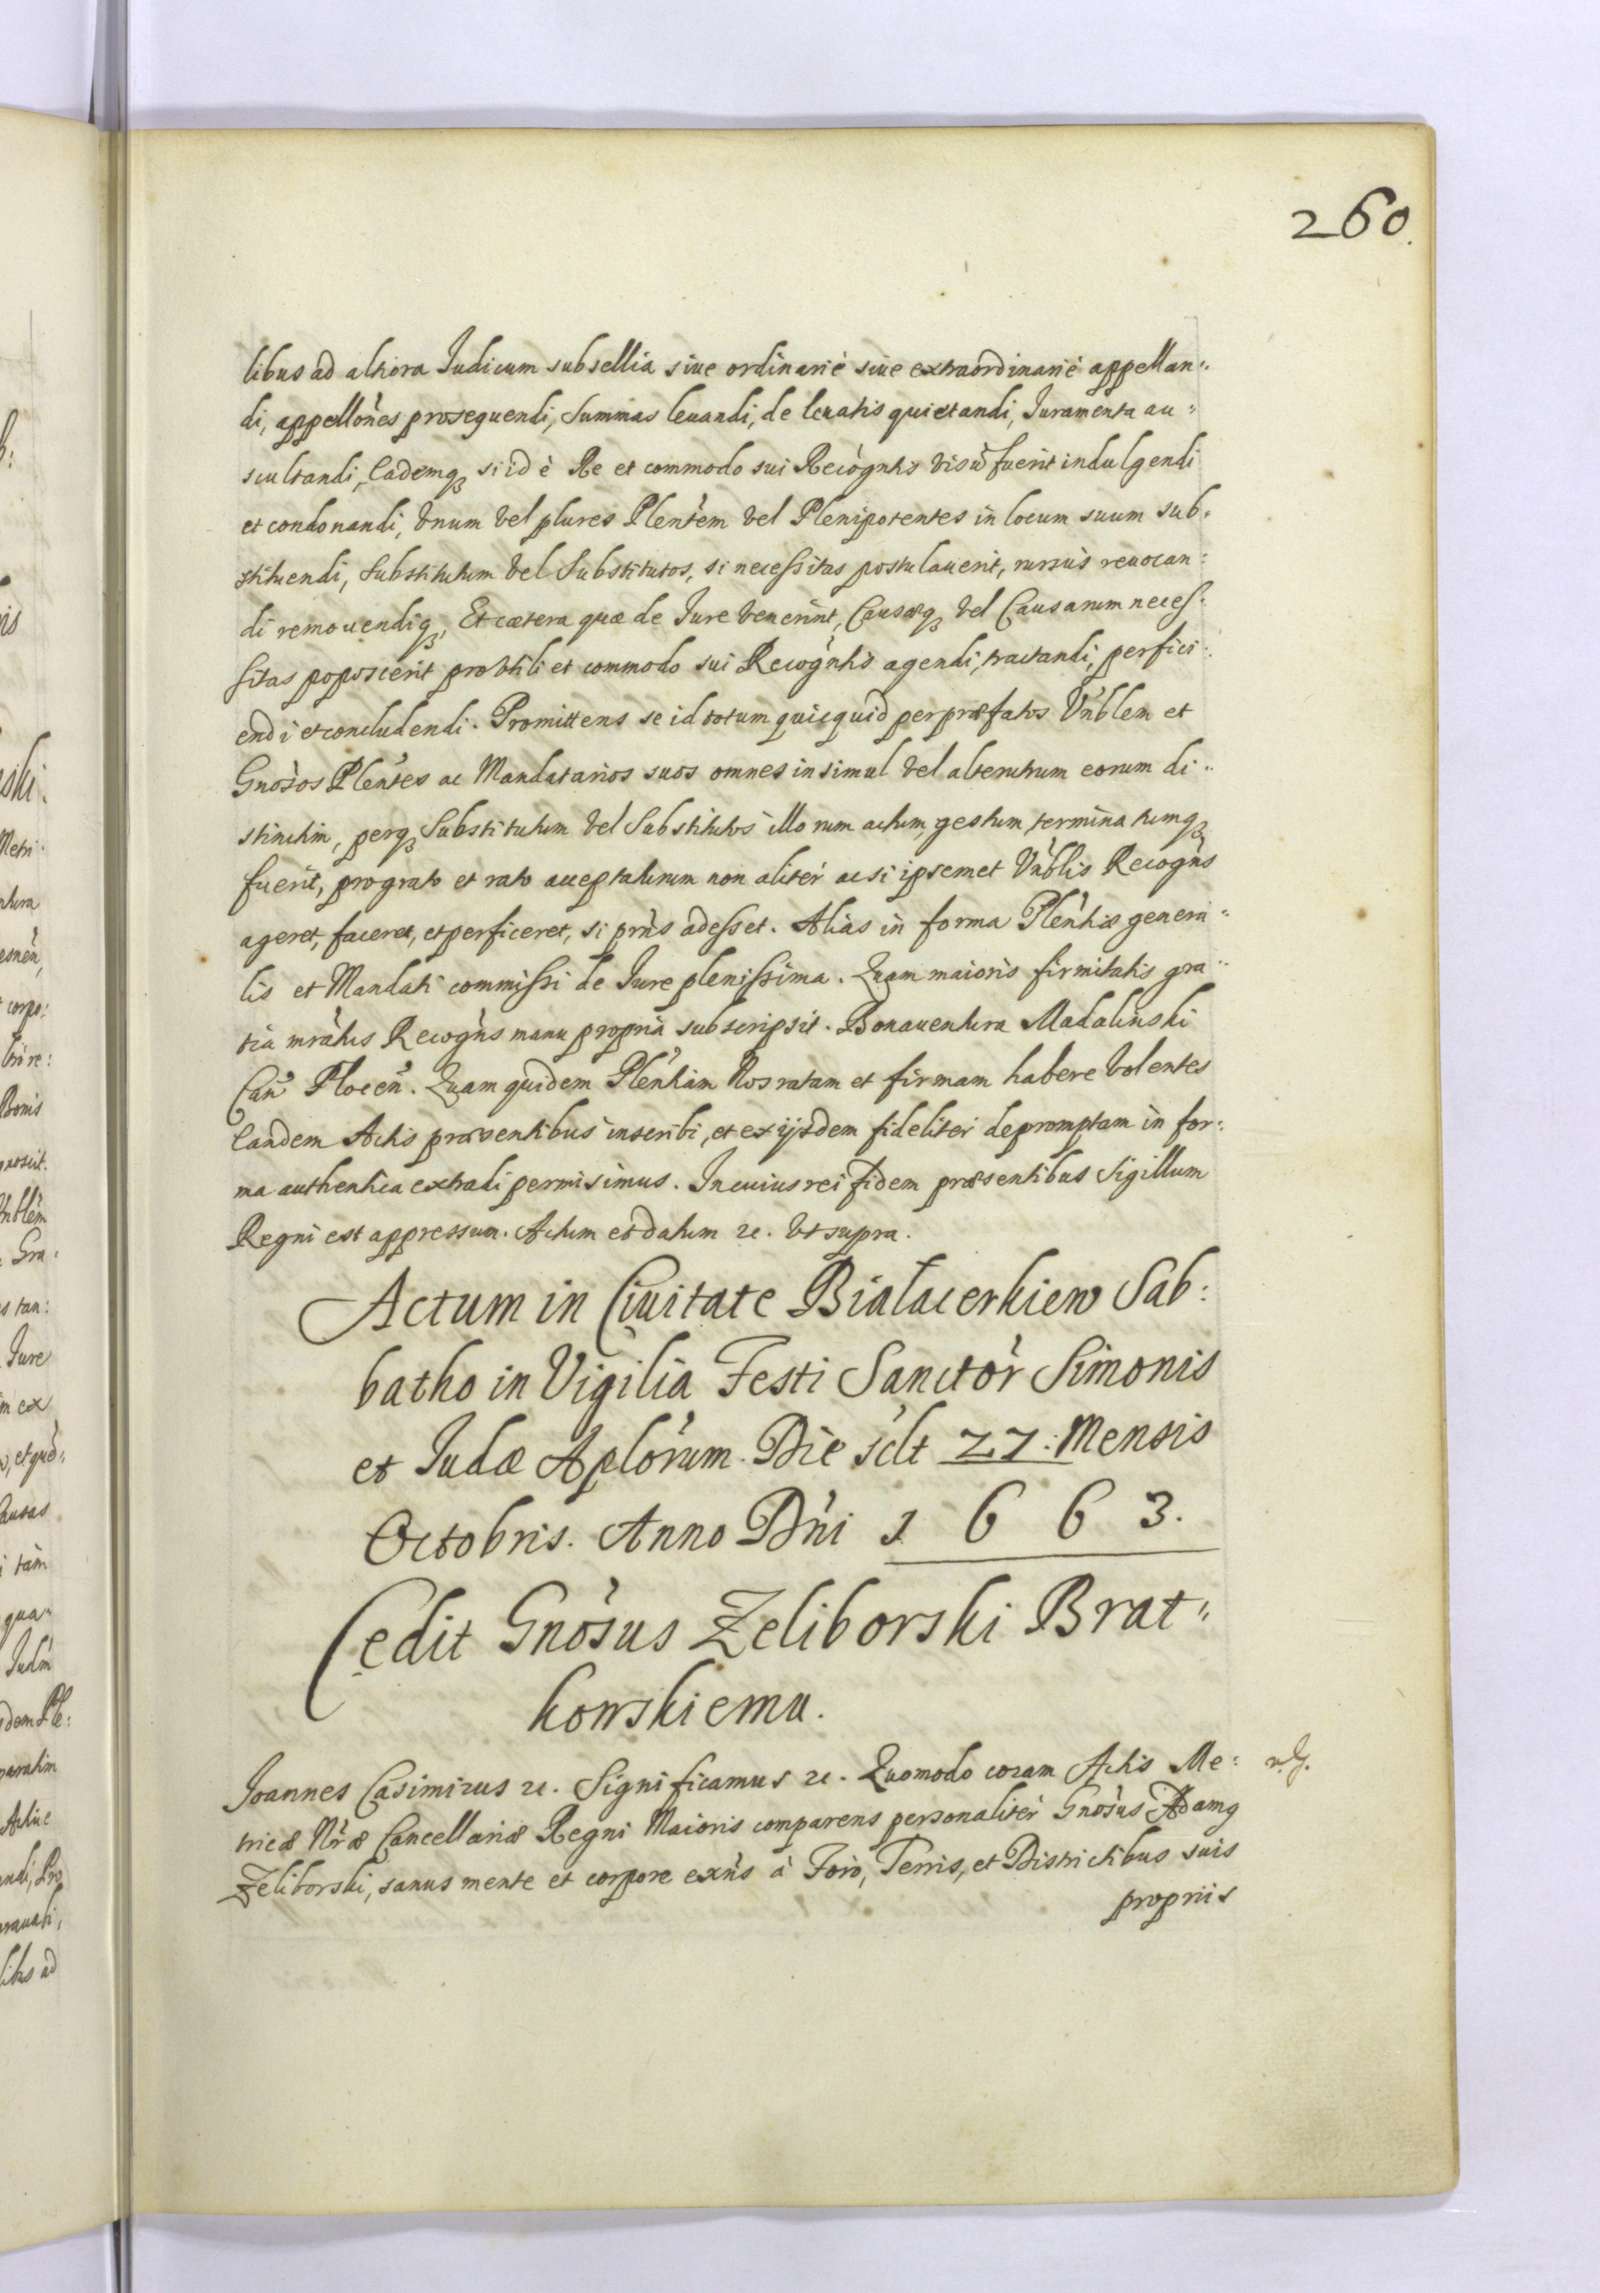 260.
libus ad altiora Iudicum subsellia siue ordinariè siue extraordinariè appellan:
di, appellõnes prosequendi, Summas leuandi, de leuatis quietandi, Iuramenta au:
scultandi, Eademq₃ si id è Re et commodo sui Recognñtis visũ fuerit indulgendi
et condonandi, Vnum vel plures Plenñtem vel Plenipotentes in locum suum sub:
stituendi, Substitutum vel Substitutos, si necessitas postulauerit, rursùs reuocan:
di remouendiq₃, Et cætera quæ de Iure venerint, Causæq₃ vel Causarum neces:
sitas poposcerit pro vtili et commodo sui Recognñtis agendi, tractandi, perfici:
endi et concludendi. Promittens se id totum quicquid per præfatos Vnblem et
Gnosos Plentes ac Mandatarios suos omnes insimul vel alterutrum eorum di:
stinctim, perq₃ Substitutum vel Substitutos illorum actum, gestum, terminatumq₃
fuerit, pro grato et rato acceptaturum non aliter ac si ipsemet Vnblis Recogns
ageret, faceret, et perficeret, si prns adesset. Aliàs in forma Plentiæ genera:
lis et Mandati commissi de Iure plenissima. Quam maioris firmitatis gra:
tia mratus Recogns manu propria subscripsit. Bonauentura Madalinski
Can Plocen. Quam quidem Plentiam Nos ratam et firmam habere volentes
Eandem Actis præsentibus inscribi, et ex ijsdem fideliter depromptam in for:
ma authentica extradi permisimus. In cuius rei fidem præsentibus Sigillum
Regni est appressum. Actum et datum ꝛc. vt supra.
Actum in Ciuitate Białacerkiew Sab:
batho in Vigilia Festi Sanctor Simonis
et Iudæ Aplorum. Die sclt 27: Mensis
Octobris. Anno Dni 1663.
Cedit Gnosus Zeliborski Brat:
kowskiemu.
Joannes Casimirus ꝛc. Significamus ꝛc. Quomodo coram Actis Me:
tricæ Nræ Cancellariæ Regni Maioris comparens personaliter Gnosus Adamg
Zeliborski, sanus mente et corpore exns à Foro, Terris, et Districtibus suis
propriis